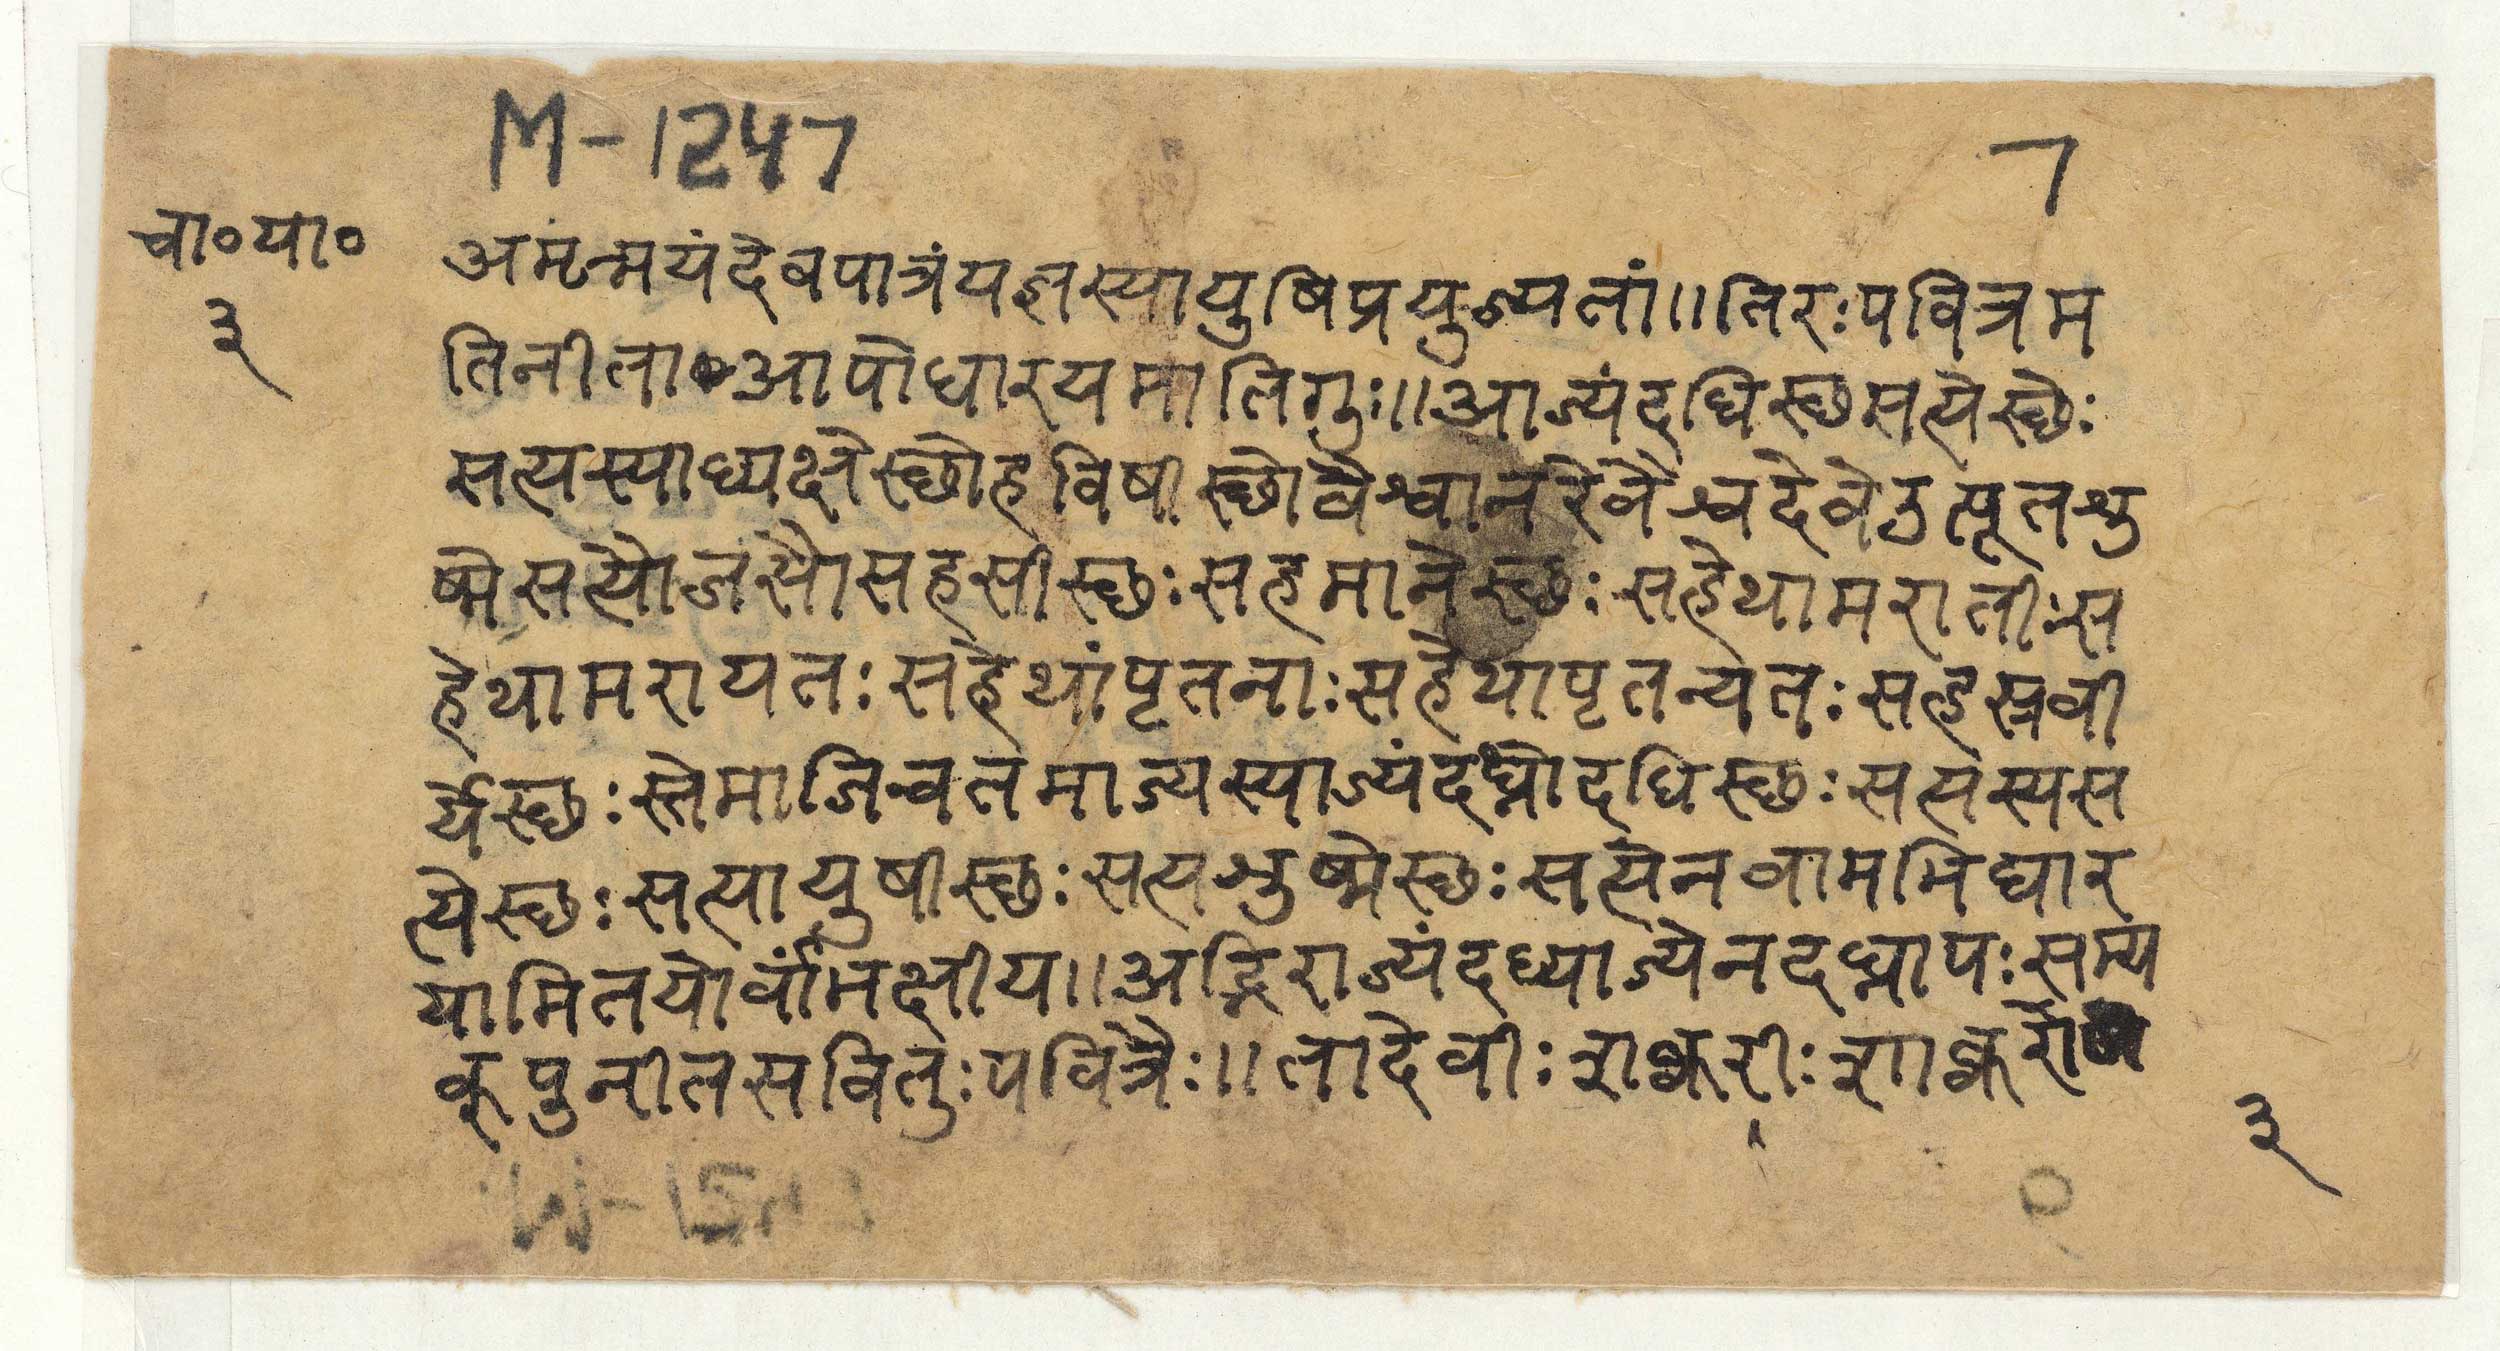 M-1247
7
चा०या०
३
अमृन्मयंदेवपात्रंयज्ञस्यायुषिप्रयुज्यतां॥तिरःपवित्रम
तिनीता आपोधारयमातिगुः॥आज्यंदधिस्छसत्येस्छेः
सत्यस्याध्यक्षेस्छोहविषीस्छोवैश्वानरेवैश्वदेवेउत्पूतशु
ष्मेसत्योजसौसहसीस्छःसहमानेस्छःसहेथामरातीःस
हेथामरायतःसहेथांपृतनाःसहेथापृतन्यतःसहस्रवी
र्येस्छःस्तेमाजिन्वतमाज्यस्याज्यंदध्नोदधिस्छःसत्यस्यस
त्येस्छःसत्यायुषीस्छःसत्यशुष्मेस्छःसत्येनवामभिघार
यामितयोर्वांभक्षीय॥अद्भिराज्यंदध्याज्येनदध्नापःसम्य
क्पुनीतसवितुःपवित्रैः॥तादेवीःशक्वरीःशाक्वरे
३